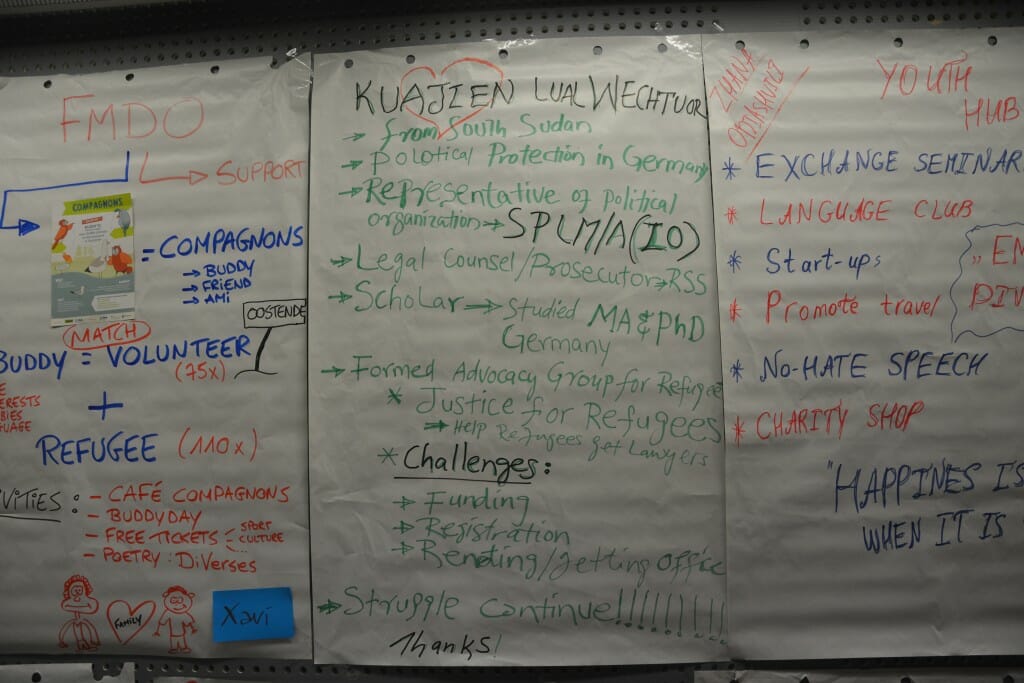 FMDO
SUPPORT
COMPAGNONS
= COMPAGNONS
→ BUDDY
→ FRIEND
→ AMi
OOSTENDE
MATCH
BUDDY = VOLUNTEER
(75x)
+
REFUGEE (110x)
- CAFÉ COMPAGNONS
- BUDDYDAY
- FREE TICKETS
SPORT
CULTURE
- POETRY : DiVerses
FAMILY
Xavi
KUAJIEN LUAL WECHTUOR
→ from South Sudan
→ polotical Protection in Germany
→ Representative of political
organization → SPLM/A(IO)
→ Legal Counsel/Prosecutor → RSS
→ Scholar → Studied MA & PhD
Germany
→ Formed Advocacy Group for Refugee
* Justice for Refugees
⇒ Help Refugees get Lawyers
* Challenges:
→ Funding
→ Registration
→ Renting/getting Office
→ Struggle continue!!!!!!!!!
Thanks!
ZHANA
YOUTH
HUB
* EXCHANGE SEMINAR
* LANGUAGE CLUB
* Start-ups
* Promote travel
* NO-HATE SPEECH
* CHARITY SHOP
"EM
DIV
"HAPPINES IS
WHEN IT IS